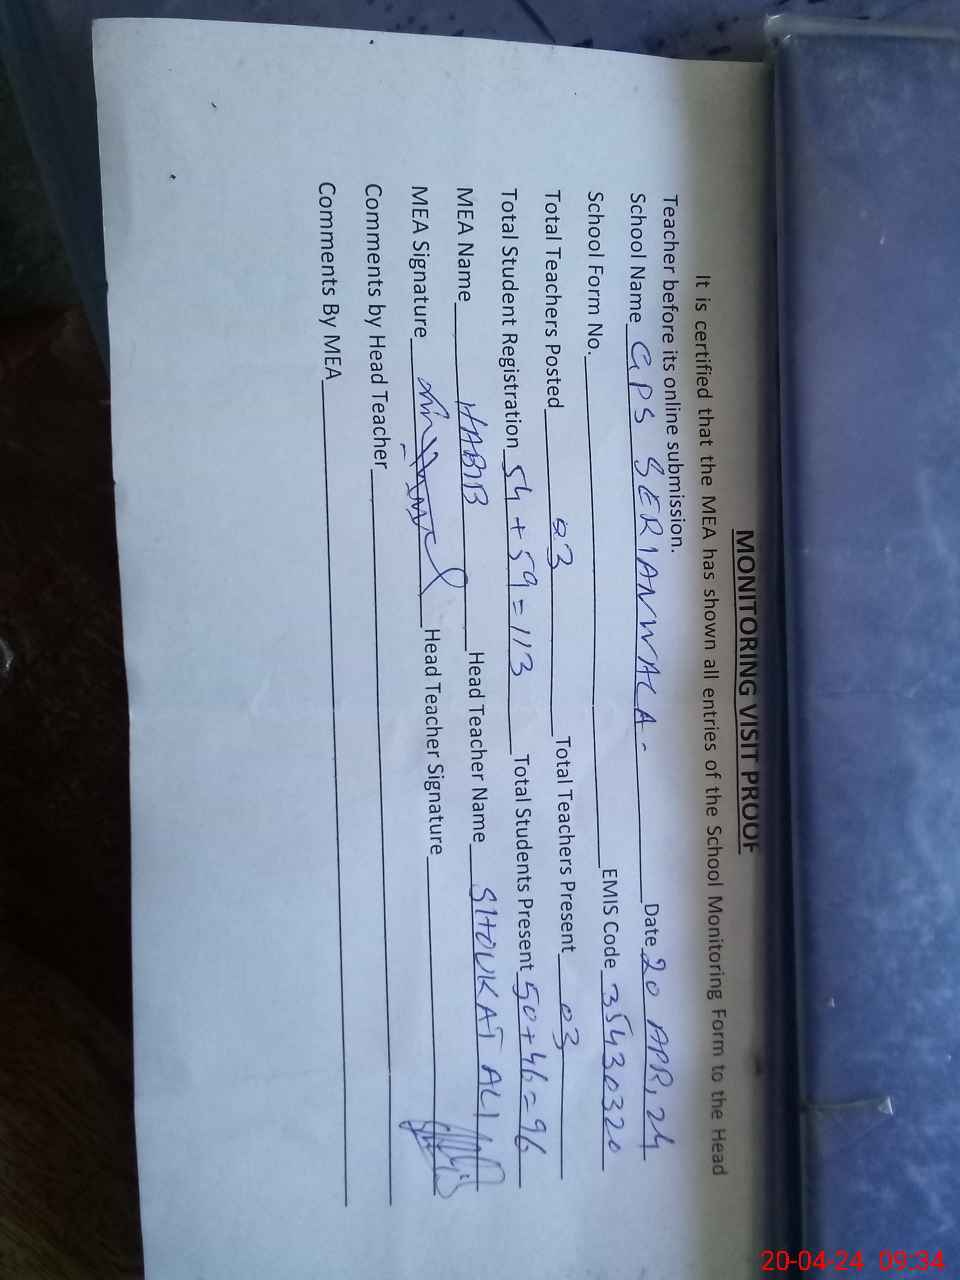 MONITORING VISIT PROOF
It is certified that the MEA has shown all entries of the School Monitoring Form to the Head
Teacher before its online submission.
School Name GPS SERIANWALA. Date 20 APR, 24
School Form No. EMIS Code 35430320
Total Teachers Posted 03 Total Teachers Present 03
Total Student Registration 54 + 59 = 113 Total Students Present 50 + 46 = 96
MEA Name HABIB Head Teacher Name SHOUKAT ALI
MEA Signature Head Teacher Signature
Comments by Head Teacher
Comments By MEA
20-04-24 09:34